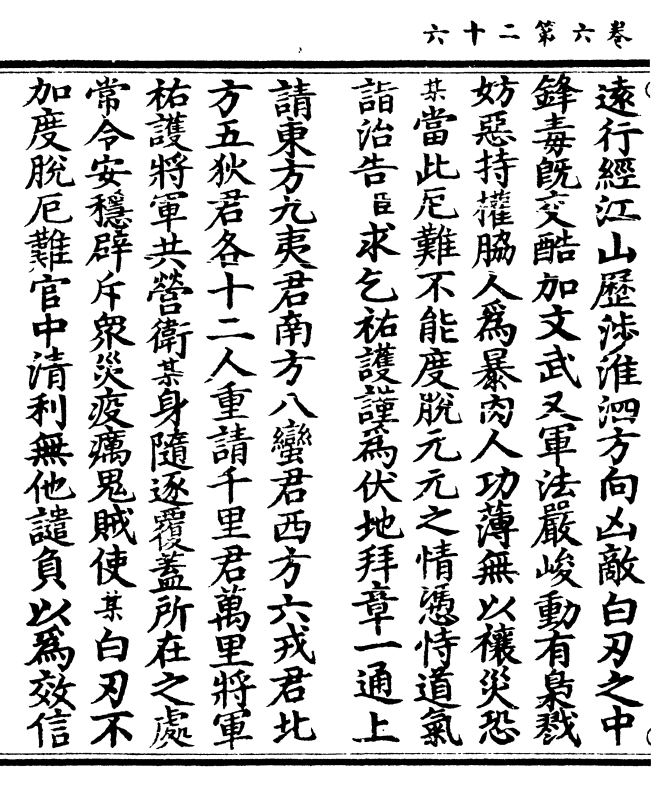 卷六第二十六
遠行經江山歷涉淮泗方向凶敵白刃之中
鋒毒旣交酷加文武又軍法嚴峻動有梟戮
妨惡持權脇人爲暴肉人功薄無以禳災恐
某當此厄難不能度脫元元之情憑恃道氣
詣治告臣求乞祐護謹爲伏地拜章一通上
請東方九夷君南方八蠻君西方六戎君北
方五狄君各十二人重請千里君萬里將軍
祐護將軍共營衛某身隨逐覆蓋所在之處
常令安穩辟斥衆災疫癘鬼賊使某白刃不
加度脫厄難官中清利無他譴負以爲效信